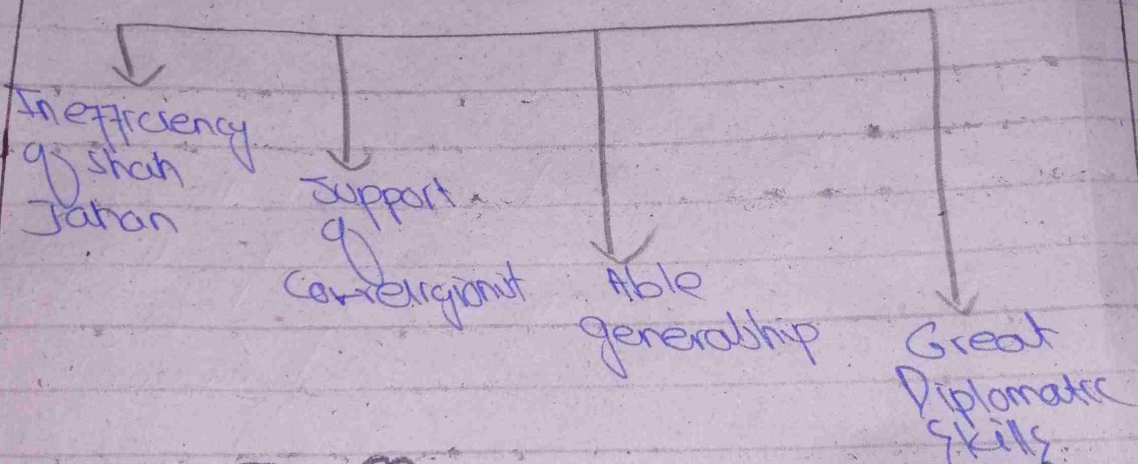 Inefficiency
of Shah
Jahan
Support
of
Correligionist
Able
generalship
Great
Diplomatic
Skills.